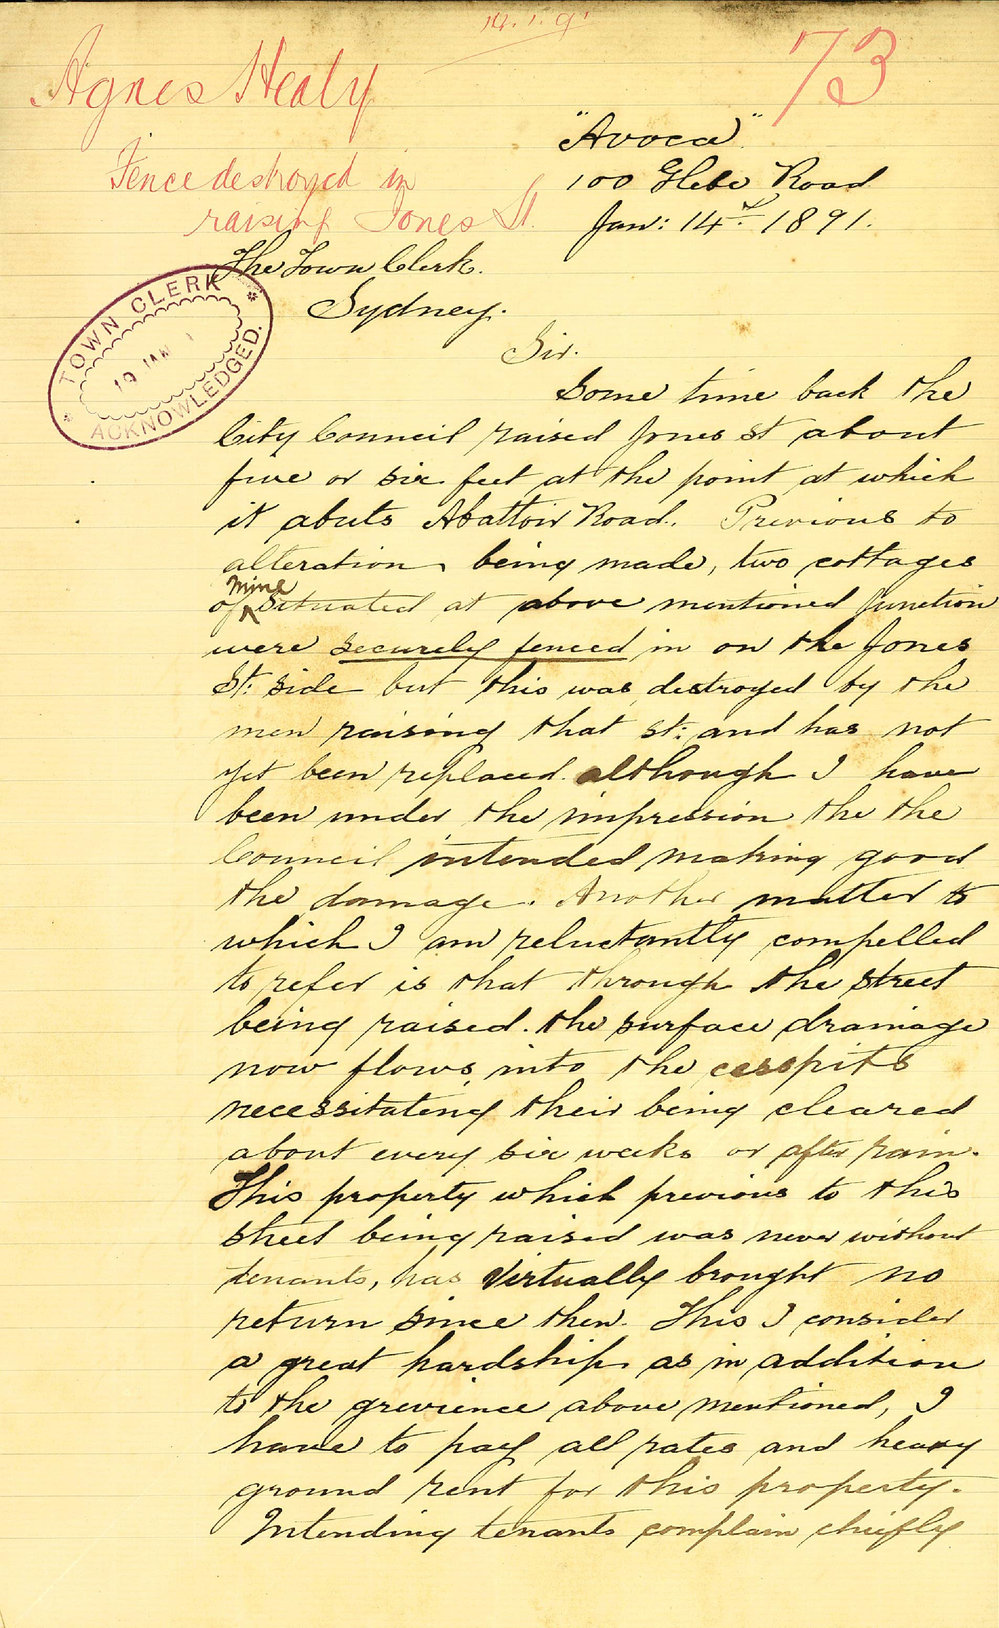 14.1.91
73
Agnes Healy
Fence destroyed in
raising Jones St.
"Avoca"
100 Glebe Road
Jan: 14th 1891.
The Town Clerk.
Sydney.
TOWN CLERK
19 JAN
ACKNOWLEDGED.
Sir.
Some time back the
City Council raised Jones st about
five or six feet at the point at which
it abuts Abattoir Road. Previous to
alteration being made, two cottages
mine
of situated at above mentioned junction
were securely fenced in on the Jones
St: side but this was destroyed by the
men raising that st: and has not
yet been replaced although I have
been under the impression the the
Council intended making good
the damage. Another matter to
which I am reluctantly compelled
to refer is that through the street
being raised. the surface drainage
now flows into the cesspits
necessitateng their being cleared
about every six weeks or after rain.
This property which previous to this
street being raised was never without
tenants, has virtually brought no
return since then. This I consider
a great hardship as in addition
to the grevience above mentioned, I
have to pay all rates and heavy
ground rent for this property.
Intending tenants complain chiefly